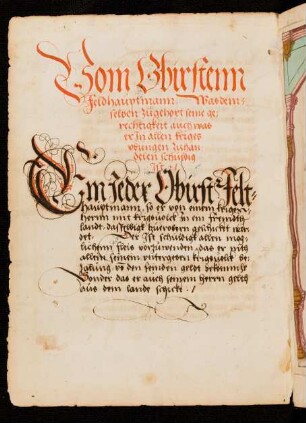 Vom Obirstenn
Feldhauptmann. Was dem-
selben Zugehort seine ge-
rechtigkeit auch was
er In allen kriegs
ubungen Zuhan
delen schuldig
Ein Jeder Obirst Felt-
hauptman, so er von einem kriegs
herrnn mit krigsvolck in ein frembdt
landt, dasselbig zu geschickt wur
det. Der Ist schuldigk allen mog
lichenn fleis vorzuwenden, das er nith
allein seinem untergeben krigsvolck be
Zalung vo den feinden geldt bekomme
Sonder das er auch seinem herrn geldt
aus dem lande schicke.